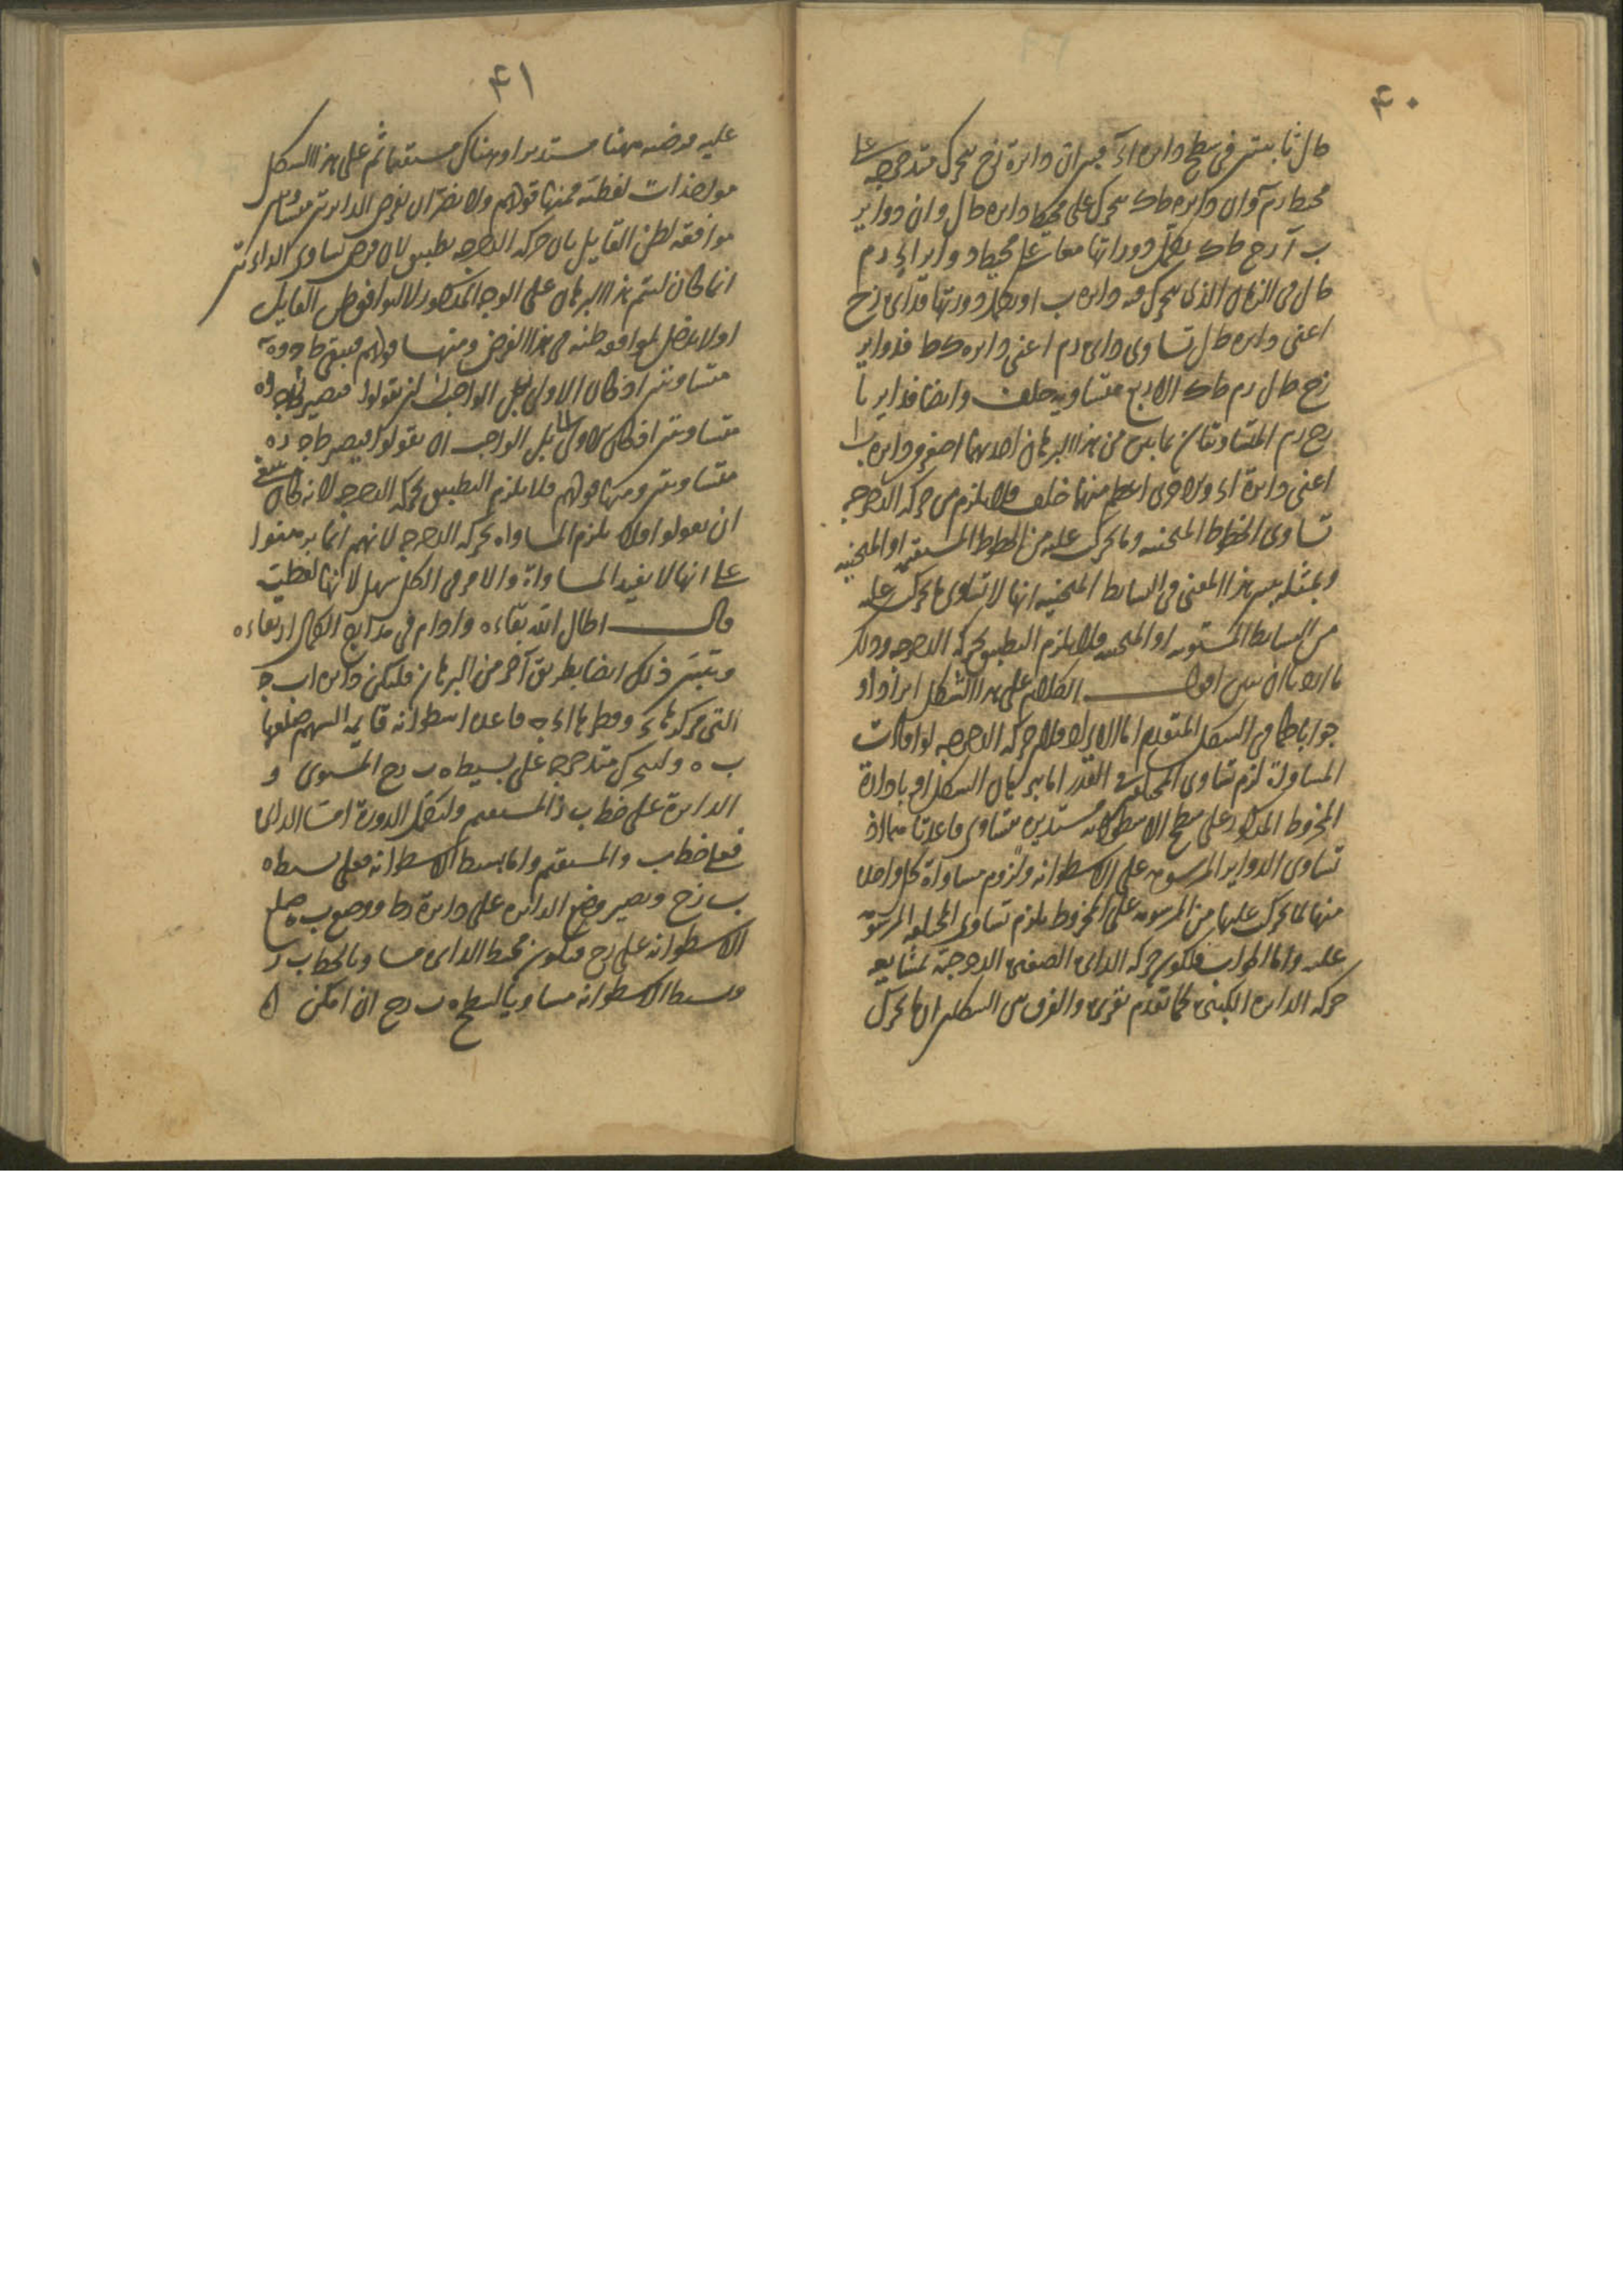 ۴۰
طال ثابتتين فی سطح دايره اء فبين ان دايرة زح تتحرك متدحرجه علی
محيط رم وان دايره طك تتحرك علی محيط دايره طال وان دواير
ب آ زح طك تكمل دوراتها معا علی محيط دواير اء رم
طال فی الزمان الذی تتحرك فيه دايره ب ا وتكمل دورتها فدايره زح
اعنی دايره طال تساوی دايره رم اعنی دايره طك فدواير
زح طال رم طك الاربع متساويه خلف وايضا فدايرتا
زح رم المتساويتان تبين من هذا البرهان احديهما اصغر من دايره ب ا
اعنی دايرة اء والاخری اعظم منها خلف فلا يلزم من حركه الدحرجه
تساوی الخطوط المنحنيه وما تحرك عليه من الخطوط المستقيمه او المنحنيه
وبمثله تبين هذا المعنی فی البسايط المنحنيه انها لا تساوی ما تحرك عليه
من البسايط المستويه او المنحنيه فلا يلزم التطبيق بحركه الدحرجه وذلك
ما اردنا ان نبين اقول الكلام علی هذا الشكل ايرادا و
جوابا كما فی الشكل المتقدم اما الايراد فلان حركه الدحرجه لو افادت
المساواة لزم تساوی المختلفين فی القدر اما ببرهان الشكل او بادارة
المخروط المذكور علی سطح الاسطوانه مستديره متساوی قاعدتاهما اذ
تساوی الدواير المرسومه علی الاسطوانه ولزوم مساواة كل واحده
منها لما تحرك عليها من المرسومه علی المخروط يلزم تساوی المختلفه المرسومه
عليه واما الجواب فلكون حركه الدايره الصغيره الدحرجيه بمشايعه
حركه الدايره الكبيره كما تقدم تقريره والفرق بين الشكلين ان ما تحرك
۴۱
عليه فرضه ههنا مستديرا وهناك مستقيما ثم علی هذا الشكل
مواخذات لفظيه فمنها قولهم ولا يضر ان نفرض الدايرتين متساويتين
موافقه لظن القايل بان حركه الدحرجه تطبيق لان فرض تساوی الدايرتين
انما كان ليتم هذا البرهان علی الوجه المذكور لا ليوافق ظن القايل
او لا مدخل لموافقه ظنه فی هذا الفرض ومنها قولهم فيبقی طا ده
متساويتين اذ كان الاولی بل الواجب ان يقولوا فيصير طا ده
متساويتين اذ كان الاولی بل الواجب ان يقولوا فيصير طا ده
متساويتين ومنها قولهم فلا يلزم التطبيق بحركه الدحرجه لانه كان ينبغی
ان يقولوا فلا يلزم المساواه بحركه الدحرجه لانهم انما برهنوا
علی انها لا يفيد المساواة والامر فی الكل سهل لانها لفظيه
قال اطال الله بقاءه وادام فی مدارج الكمال ارتقاءه
وتبين ذلك ايضا بطريق آخر من البرهان فلتكن دايره اب ج
التی مركزها ء وقطرها ا ء ج قاعده اسطوانه قايمه السهم ضلعها
ب ه ولتتحرك متدحرجه علی بسيط ه ب رح المستوی و
الدايرة علی خط ب ز المستقيم ولتكمل الدورة امتا الدايره
فعلی خط ب ز المستقيم واما بسيط الاسطوانه فعلی بسيط ه
ب ز ح ويصير وضع الدايره علی دايرة رط ووضع ب ه ضلع
الاسطوانه علی رح فيكون محيط الدايره مساويا لخط ب ز
وبسيط الاسطوانه مساويا لسطح ه ب رح ان امكن